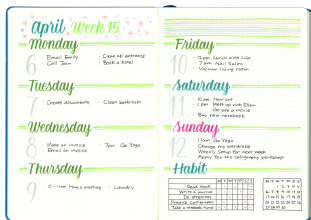 April Week 15
Monday
6
Email Emily
Call Joan
Clean up entrance
Book a hotel
Tuesday
7
Create documents
Clean bathroom
Wednesday
8
Make an invoice
Email an invoice
7pm Go Yoga
Thursday
9
10-11am Home meeting
Laundry
Friday
10
12pm Lunch with Lisa
7am Nail Salon
Vacuum living room
Saturday
11
10am Hair cut
1pm Meet up with Ellen
Go see a movie
Buy new notebook
Sunday
12
11am Go Yoga
Change my wardrobe
Weekly Setup for next week
Apply for the calligraphy workshop
Habit
Read book
Write a journal
Do stretches
Practice Calligraphy
Take a mindful time